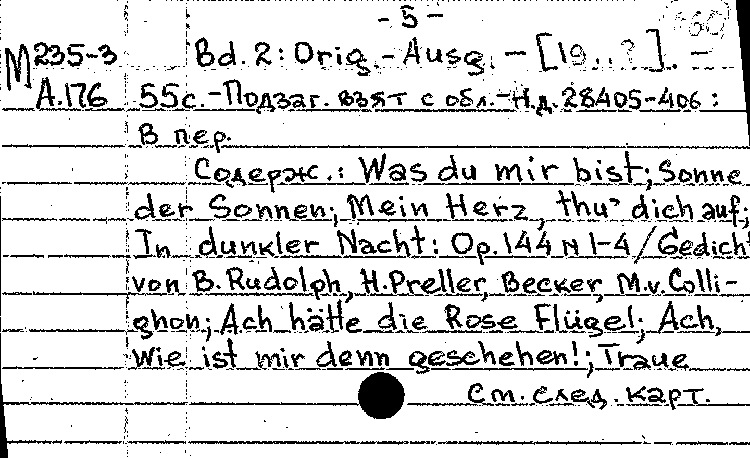 - 5 -
M 235-3 Bd. 2: Orig.-Ausg. - [19..?]. -
A.176 55с.-Подзаг. взят с обл.-Н.д. 28405-406:
В пер.
Содерж.: Was du mir bist; Sonne
der Sonnen; Mein Herz, thu' dich auf;
In dunkler Nacht: Op. 144 N 1-4/Gedicht
von B. Rudolph, H. Preller, Becker, M.v. Colli-
ghon; Ach hätte die Rose Flügel; Ach,
wie ist mir denn geschehen!; Traue
См. след. карт.